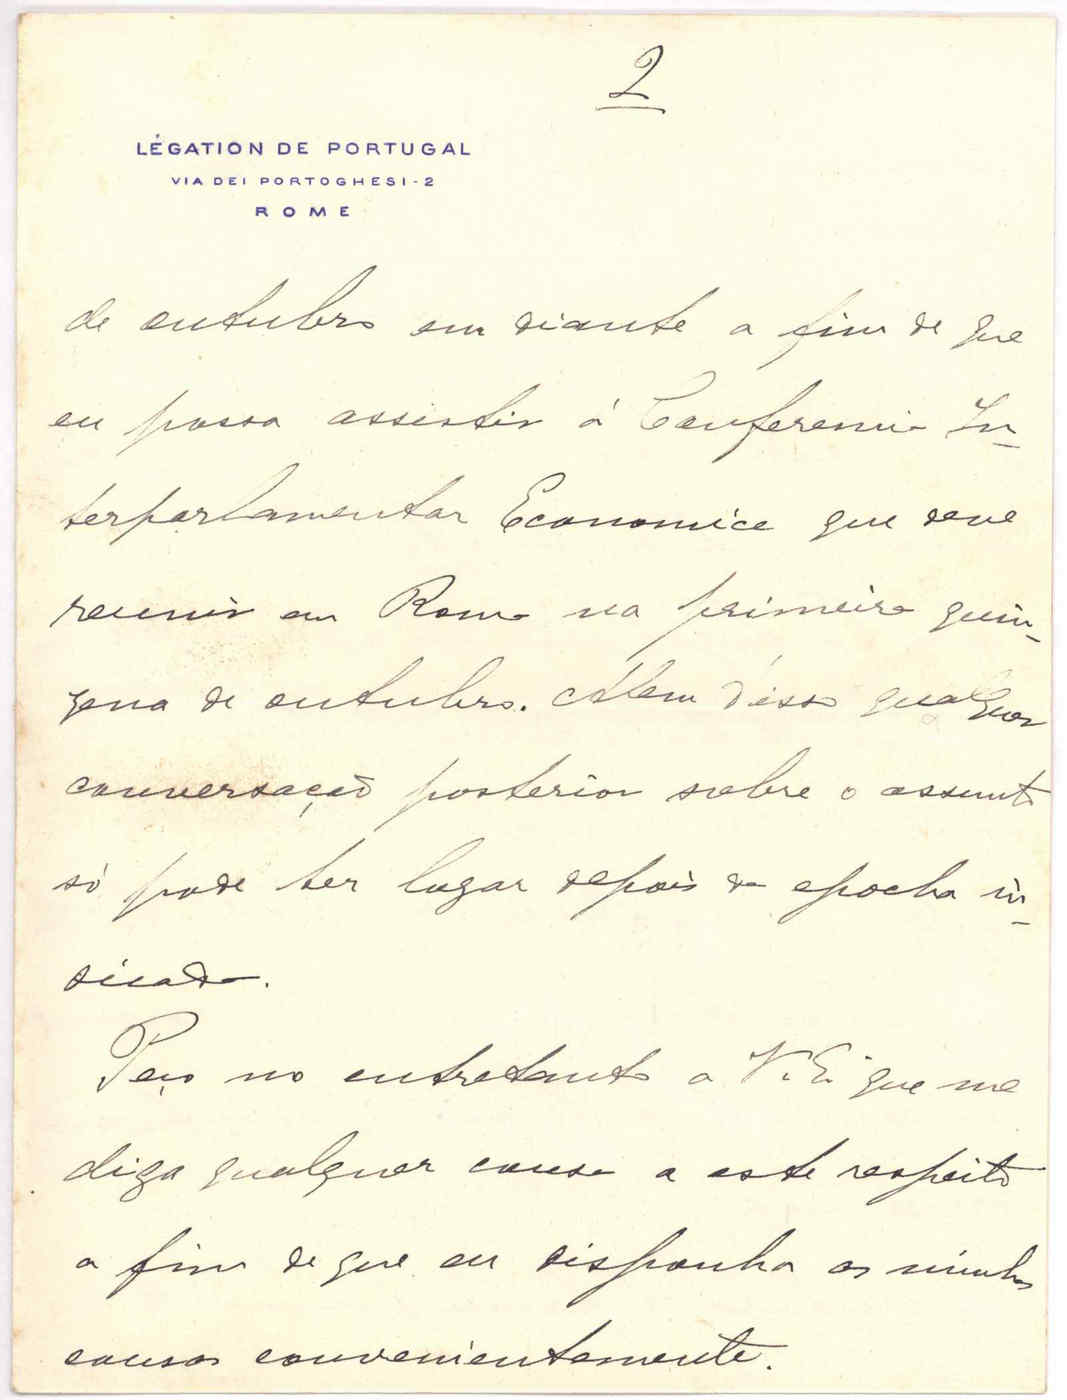 2
LÉGATION DE PORTUGAL
VIA DEI PORTOGHESI-2
ROME
de outubro em diante a fim de que
eu possa assistir á Conferencia In-
terparlamentar Economica que deve
reunir em Roma na primeira quin-
zena de outubro. Alem d'isso qualquer
conversação posterior sobre o assunto
só pode ter lugar depois da epocha in-
dicada.
Peço no entretanto a V. E. que me
diga qualquer cousa a este respeito
a fim de que eu disponha as minhas
cousas convenientemente.